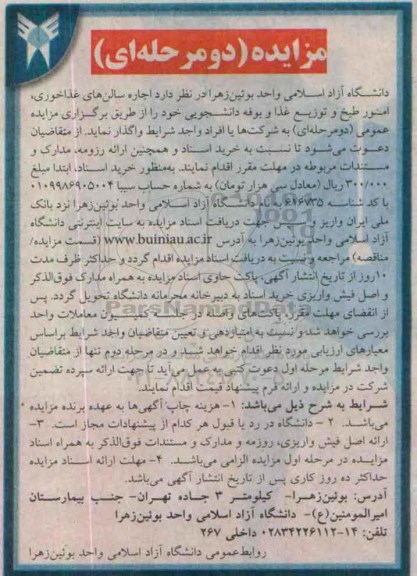 مزایده (دومرحله‌ای)
دانشگاه آزاد اسلامی واحد بوئین‌زهرا در نظر دارد اجاره سالن‌های غذاخوری،
امور طبخ و توزیع غذا و بوفه دانشجویی خود را از طریق برگزاری مزایده
عمومی (دومرحله‌ای) به شرکت‌ها یا افراد واجد شرایط واگذار نماید. از متقاضیان
دعوت می‌شود تا نسبت به خرید اسناد و همچنین ارائه رزومه، مدارک و
مستندات مربوطه در مهلت مقرر اقدام نمایند. به‌منظور خرید اسناد، ابتدا مبلغ
۳۰۰/۰۰۰ ریال (معادل سی هزار تومان) به شماره حساب سیبا ۰۱۰۹۹۸۶۹۰۵۰۰۴
با کد شناسه ۱۶۱۶۷۳۵ بنام دانشگاه آزاد اسلامی واحد بوئین‌زهرا نزد بانک
ملی ایران واریز و سپس جهت دریافت اسناد مزایده به سایت اینترنتی دانشگاه
آزاد اسلامی واحد بوئین‌زهرا به آدرس www.buiniau.ac.ir (قسمت مزایده/
مناقصه) مراجعه و نسبت به دریافت اسناد مزایده اقدام گردد و حداکثر ظرف مدت
۱۰روز از تاریخ انتشار آگهی، پاکت حاوی اسناد مزایده به همراه مدارک فوق‌الذکر
و اصل فیش واریزی خرید اسناد به دبیرخانه محرمانه دانشگاه تحویل گردد. پس
از انقضای مهلت مقرر، پاکت‌های معاملات واحد
بررسی خواهد شد و نسبت به امتیازدهی و تعیین متقاضیان واجد شرایط براساس
معیارهای ارزیابی مورد نظر اقدام خواهد شد و در مرحله دوم تنها از متقاضیان
واجد شرایط مرحله اول دعوت کتبی به عمل می‌آید تا جهت ارائه سپرده تضمین
شرکت در مزایده و ارائه فرم پیشنهاد قیمت اقدام نمایند.
شرایط به شرح ذیل می‌باشد: ۱- هزینه چاپ آگهی‌ها به عهده برنده مزایده
می‌باشد. ۲- دانشگاه در رد یا قبول هر کدام از پیشنهادات مجاز است. ۳-
ارائه اصل فیش واریزی، رزومه و مدارک و مستندات فوق‌الذکر به همراه اسناد
مزایده در مرحله اول مزایده الزامی می‌باشد. ۴- مهلت ارائه اسناد مزایده
حداکثر ده روز کاری پس از تاریخ انتشار آگهی می‌باشد.
آدرس: بوئین‌زهرا- کیلومتر ۳ جاده تهران- جنب بیمارستان
امیرالمومنین(ع)- دانشگاه آزاد اسلامی واحد بوئین‌زهرا
تلفن: ۱۴-۰۲۸۳۴۲۲۶۱۱۲ داخلی ۲۶۷
روابط‌عمومی دانشگاه آزاد اسلامی واحد بوئین‌زهرا